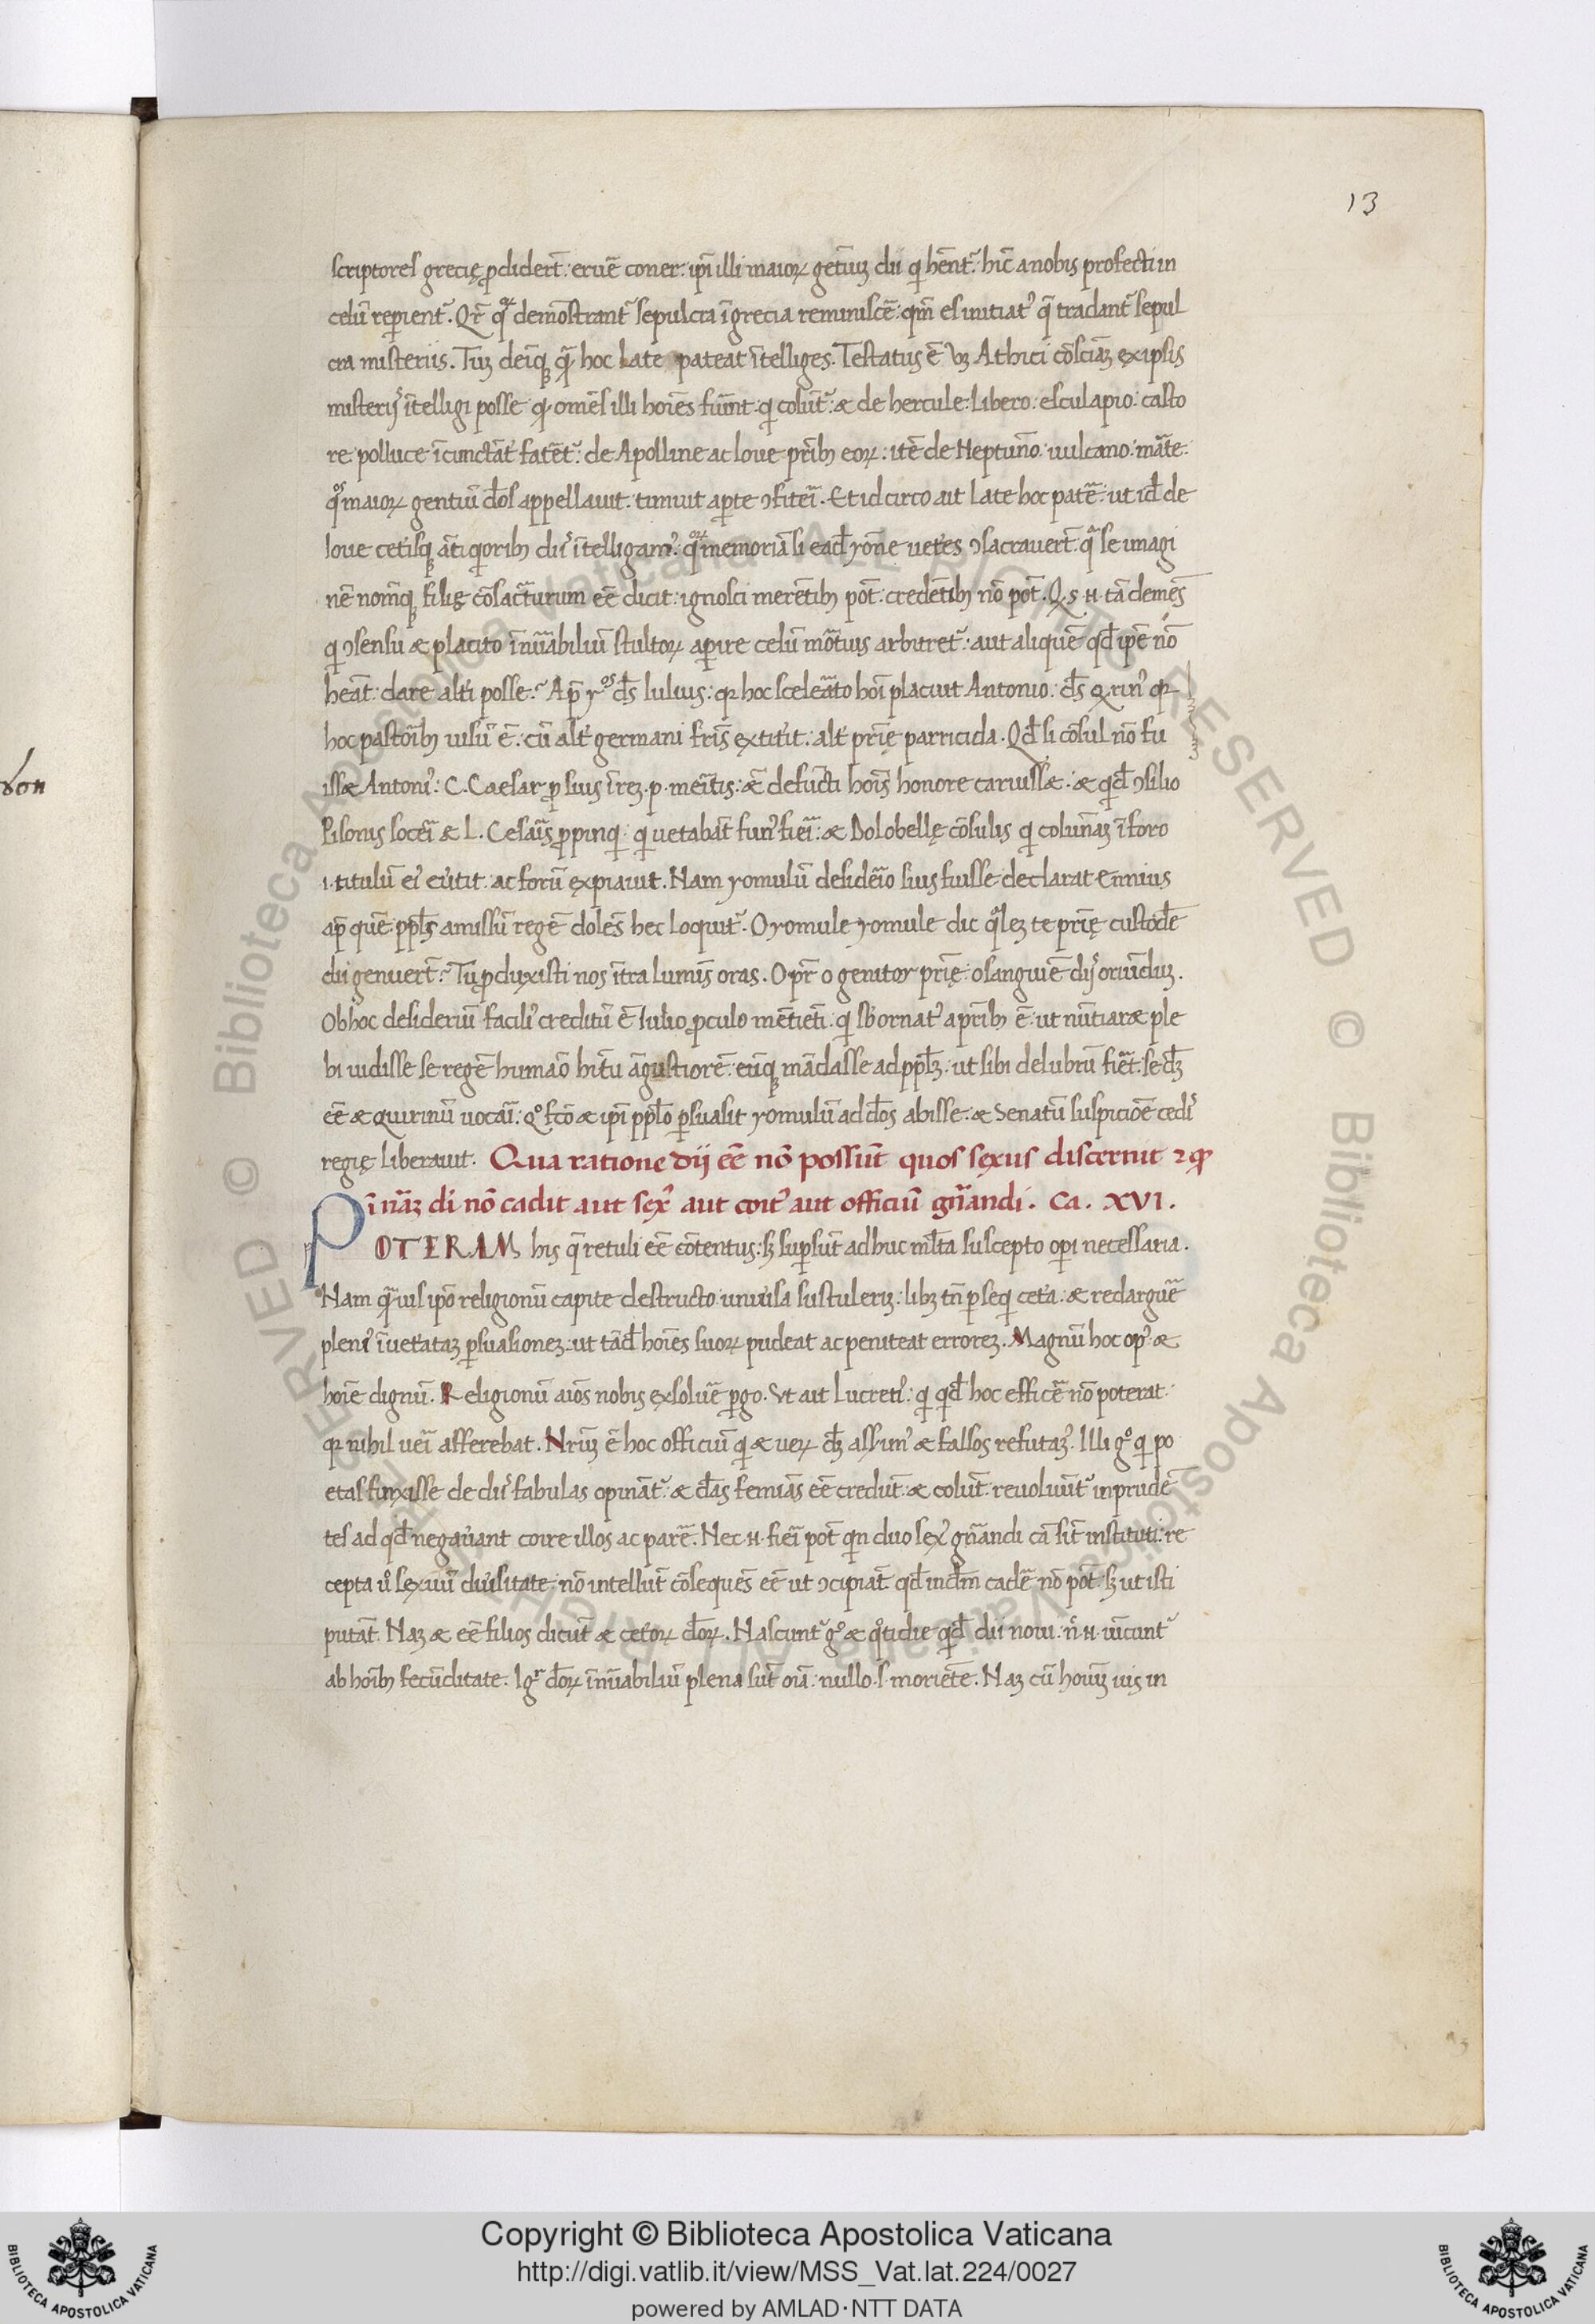 13
scriptores grecię ꝓdideꝛt̄: eruē coner: ip̄i illi maioꝝ getiūꝫ dii qͥ hēntᷣ: hīc a nobis profecti in
celū reꝑientᷣ. Qr̄ qͦꝝ demōstrantᷣ sepulcra ī grecia reminiscē: qm̄ es initiatꝰ q̄ tradantᷣ sepul
cra misteriis. Tūꝫ deīqꝫ q̄ hoc late pateat ītelliges. Testatus ē Athici cōsciāꝫ ex ipsis
misterijˢ ītelligi posse ꝙ om̄es illi hoīes fuer̄nt qͥ colūtᷣ: æ de hercule: Libero: esculapio: casto
re polluce īcunctāt fatētᷣ: de Apolline ac Ioue pr̄ibꝫ eoꝝ: itē de Neptūno: uulcano: mārte:
qͦs maioꝝ gentiū d̄os appellauit. timuit aꝑte ↄfiteī. Et idcirco ait Late hoc patē: ut id̄ de
Ioue cetīsqꝫ ātiqͥoribꝫ diis ītelligamꝰ: qͦꝝ memoriā si ead̄ rōne uetes ↄsacrauert̄: qͣ se imagi
nē nom̄qꝫ filię cōsacͣturum eē dicit: ignosci merētibꝫ pōt: credētibꝫ nō pōt. Qͥs .n. tā demēs̄
qͥ ↄsensu æ placito īnūabiliū stultoꝝ aꝑire celū mōtuis arbitretᷣ: aut aliquē qd̄ ip̄e nō
heāt: dare alt̓i posse? Ap̄ rͦos d̄s Iulius: qꝛ hoc sceleāto hoī placuit Antonio: d̄s Qͥrinꝰ qꝛ
hoc pastōībꝫ uisū ē: cū alt̓ germani fr̄is extitit: alt̓ pr̄ię parricida. Qd̄ si cōsul nō fu
issæ Antonīꝰ: C. Caesar ꝓ suis ī reꝫ .p. meītis: ǣ defūcti hoīs honore caruissæ: æ qͥd̄ ↄsilio
Pisonis soceī æ L. Cesaīs ꝓpinqͥ: qͥ uetabāt funꝰ fieī: æ Dolobellę cōsulis qͥ colūnāꝫ ī foro
.i. titulū eiꝰ eu̓tit: ac forū expiauit. Nam romulū desideīo suis fuisse declarat Ennius
ap̄ quē ppl̄s amissū regē dolēs hec loquitᷣ. O romule romule dic qͣleꝫ te pr̄ię custodē
dii genuert̄? Tu ꝓduxisti nos ītra lumīs oras. O pr̄ o genitor pr̄ię: o sanguē dijˢ oriūduꝫ.
Ob hoc desideriū faciliꝰ creditū ē Iulio ꝓculo mētiēti: qͥ sbornatꝰ a pr̄ibꝫ ē: ut nūtiaræ ple
bi uidisse se regē humāo hītu āgustiorē: eūqꝫ mādasse ad ppl̄ꝫ: ut sibi delubrū fiet̄: se d̄ꝫ
eē æ quirinū uocaī. Qͦ fc̄o æ ip̄i ppl̄o ꝑsuasit romulū ad d̄os abisse: æ Senatū suspiciōe cedīs
regię liberauit. Qua ratione dij eē nō possūt quos sexus discernit ⁊ ꝙ
ī nāꝫ di nō cadit aut sexꝰ aut coitꝰ aut officiū gn̄andi. Ca. XVI.
POTERAM his q̄ retuli eē cōtentus: sꝫ suꝑsūt adhuc ml̄ta suscepto oꝑi necessaria.
Nam qͣuis ip̄o religionū capite destructo uniu̓sa sustuleriꝫ: libꝫ tn̄ ꝑseqͥ cet̓a: æ redarguē
pleniꝰ īuet̓ataꝫ ꝑsuasioneꝫ: ut tād̄ hoīes suoꝝ pudeat ac peniteat erroreꝫ. Magnū hoc opꝰ æ
hoīe dignū. Religionū aīos nobis exsoluē ꝑgo. Vt ait Lucretꝰ: qͥ qͥd̄ hoc efficē nō poterat:
qꝛ nihil ueī afferebat. Nr̄uꝫ ē hoc officiū qͥ æ ueꝝ d̄ꝫ assīmꝰ æ falsos refutaꝫꝰ. Illi gͦ qͥ po
etas finxisse de diis fabulas opināt: æ d̄as femīas eē credūt: æ colūt: reuoluūtᷣ inprudē
tes ad qd̄ negau̓ant coire illos ac parē. Nec .n. fieī pōt qͥn duo sexꝰ gn̄andi cā sīt instituti: re
cepta u̓o sexuū diu̓sitate: nō intellūt cōsequēs eē ut ↄcipiāt: qd̄ in d̄m cadē nō pōt: sꝫ ut isti
putāt. Naꝫ æ eē filios dicūt æ cet̓oꝝ d̄oꝝ. Nascuntᷣ gͦ æ qͦtidie qͥd̄ dii noui: n̄ .n. uīcuntᷣ
ab hoībꝫ fecūditate. Igͬ d̄oꝝ īnūabiliū plena sūt oīa: nullo .s. moriēte. Naꝫ cū hoīuꝫ uis in
Copyright © Biblioteca Apostolica Vaticana
http://digi.vatlib.it/view/MSS_Vat.lat.224/0027
powered by AMLAD·NTT DATA